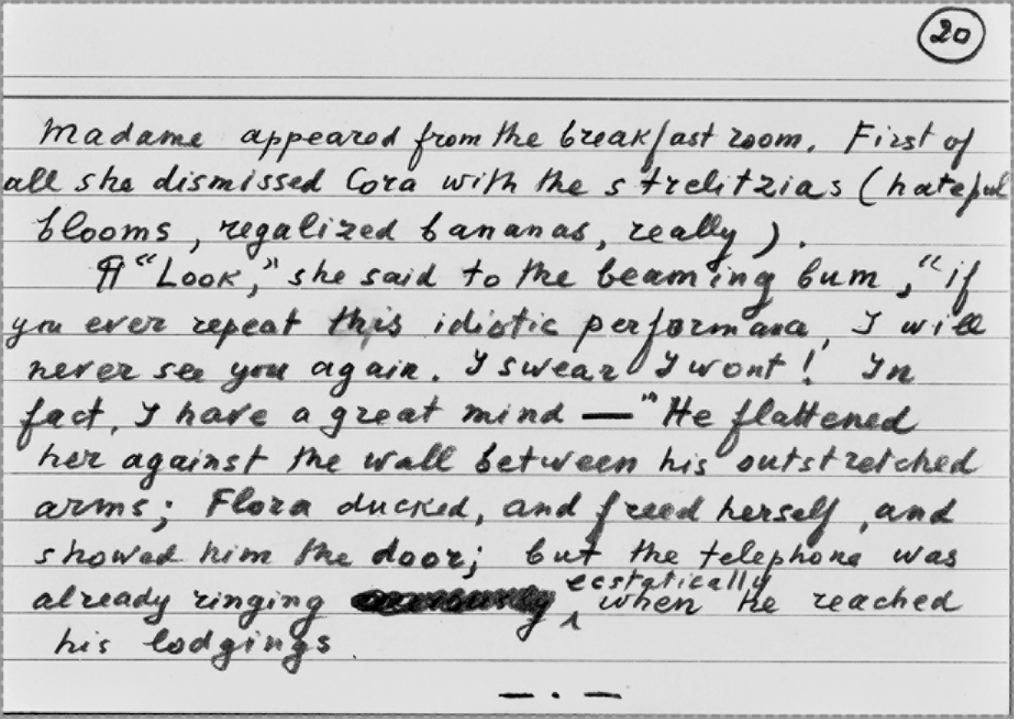 20
Madame appeared from the breakfast room. First of
all she dismissed Cora with the strelitzias (hateful
blooms, regalized bananas, really).
¶ “Look,” she said to the beaming bum, “if
you ever repeat this idiotic performance, I will
never see you again. I swear I wont! In
fact, I have a great mind —” He flattened
her against the wall between his outstretched
arms; Flora ducked, and freed herself, and
showed him the door; but the telephone was
already ringing ecstatically when he reached
his lodgings
— . —